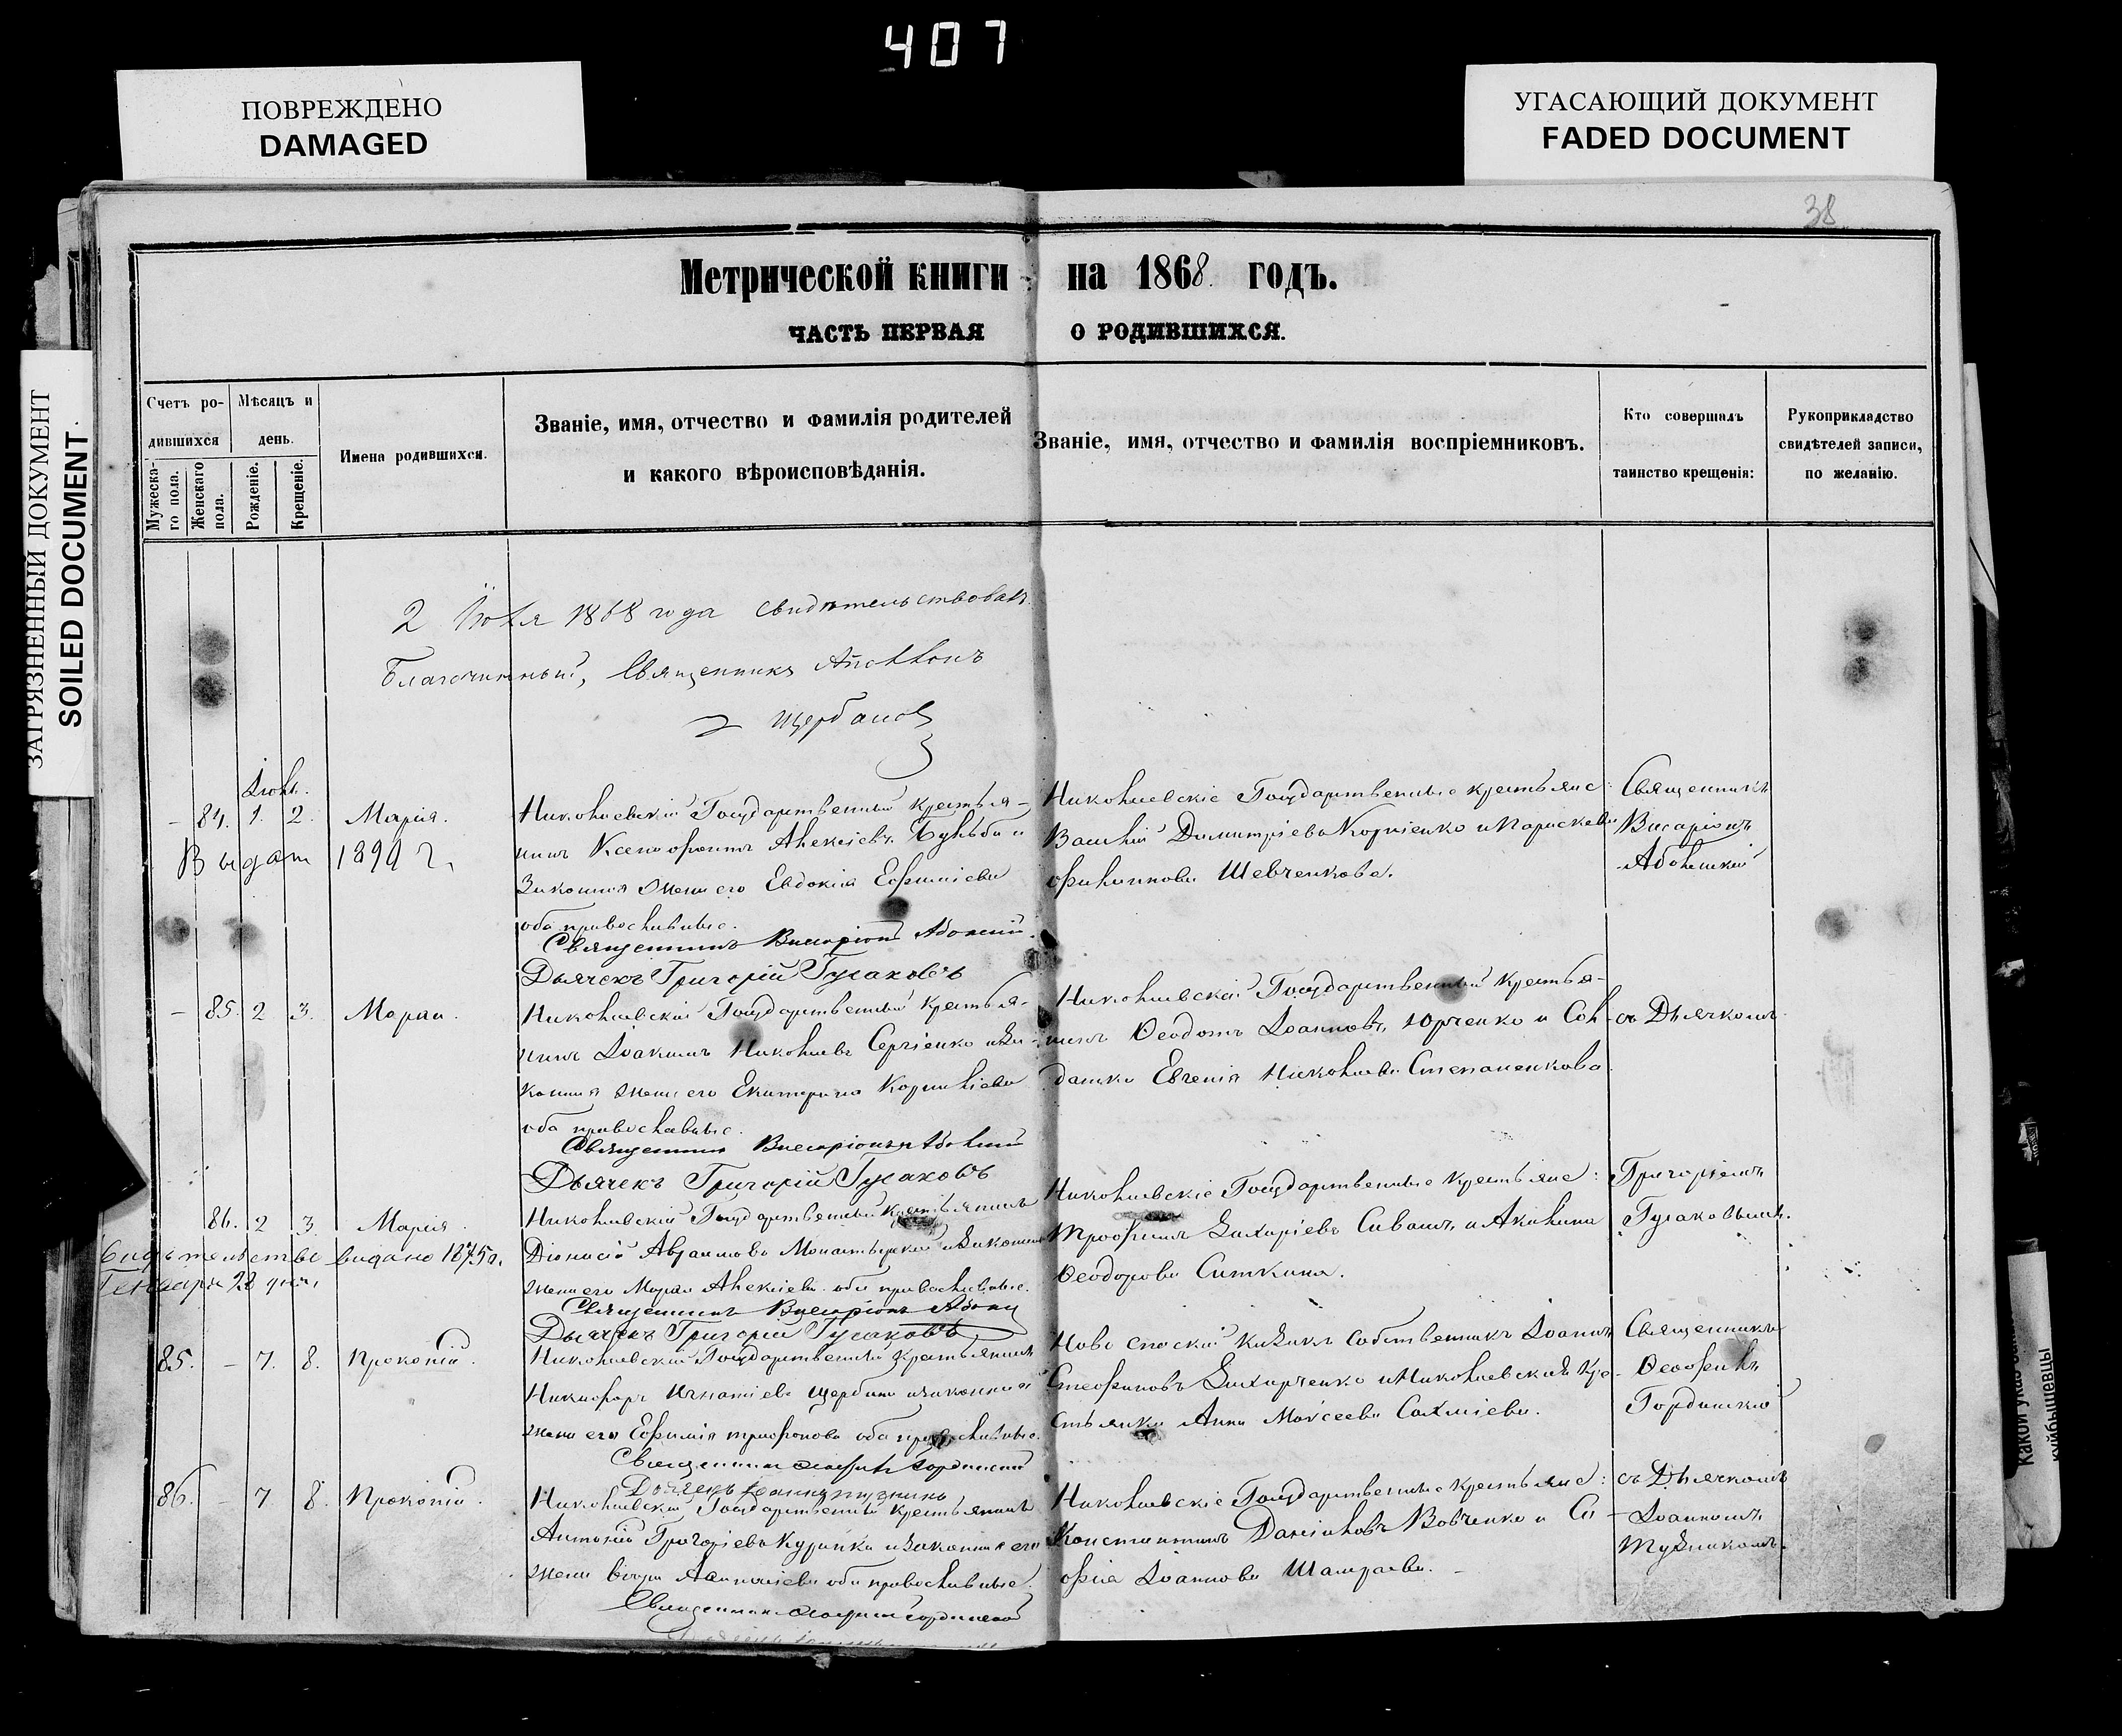 407
ПОВРЕЖДЕНО
DAMAGED
УГАСАЮЩИЙ ДОКУМЕНТ
FADED DOCUMENT
ЗАГРЯЗНЕННЫЙ ДОКУМЕНТ
SOILED DOCUMENT
38
Метрической книги на 1868 годъ.
ЧАСТЬ ПЕРВАЯ О РОДИВШИХСЯ.
Счетъ родившихся
Мужескаго пола.
Женскаго пола.
Мѣсяцъ и день.
Рожденіе.
Крещеніе.
Имена родившихся.
Званіе, имя, отчество и фамилія родителей
и какого вѣроисповѣданія.
Званіе, имя, отчество и фамилія воспріемниковъ.
Кто совершалъ
таинство крещенія:
Рукоприкладство
свидѣтелей записи,
по желанію.
2 Іюля 1868 года свидѣтельствовалъ
Благочинный, Священникъ
Щербаков
Іюль.
– 84. 1. 2. Марія.
Выдат 1899 г.
Николаевскій Государственный крестья-
нинъ Ксенофонтъ Алексіевъ и
Законная жена его Евдокія Ефиміева
оба православные.
Священникъ Виссаріонъ
Дьячекъ Григорій Гусаковъ
Николаевскіе Государственные крестьяне:
Василій Димитріевъ Корніенко и Параскева
Филиппова Шевченкова.
Священникъ
Висаріонъ
– 85. 2 3. Марѳа.
Николаевскій Государственный крестья-
нинъ Іоакимъ Николаевъ Сергіенко и За-
конная жена его Екатерина Корниліева
оба православные.
Священникъ Виссаріонъ
Дьячекъ Григорій Гусаковъ
Николаевскій Государственный крестья-
нинъ Ѳеодотъ Іоанновъ Юрченко и Сол-
датка Евгенія Николаева Степаненкова.
съ Дьячкомъ
86. 2 3. Марія.
Свидѣтельство видано 1875 г.
Генваря 28 дня.
Николаевскій Государственный крестьянинъ
Діонисій Авраамовъ Монастырскій и Законная
жена его Марѳа Алексіева оба православные.
Священникъ Виссаріонъ
Дьячекъ Григорій Гусаковъ
Николаевскіе Государственные крестьяне:
Трофимъ Захаріевъ Сивашъ и Акилина
Ѳеодорова Ситкина.
Григоріемъ
Гусаковымъ.
85. – 7. 8. Прокопій.
Николаевскій Государственный крестьянинъ
Никифоръ Игнатіевъ Щербина и законная
жена его Ефимія Трифонова оба православные.
Священникъ Ѳеофилъ Гординскій
Ново Спаскій казакъ собственникъ Іоаннъ
Стефановъ Захарченко и Николаевская Кре-
стьянка Анна Моисеева
Священникъ
Ѳеофилъ
Гординскій
86. – 7. 8. Прокопій.
Николаевскій Государственный крестьянинъ
Антоній Григоріевъ Курипка и законная его
жена оба православные.
Священникъ Ѳеофилъ Гординской
Николаевскіе Государственные крестьяне:
Константинъ Даніиловъ Вовченко и Со-
фія Іоаннова Шамраева.
съ Дьячкомъ
Іоанномъ